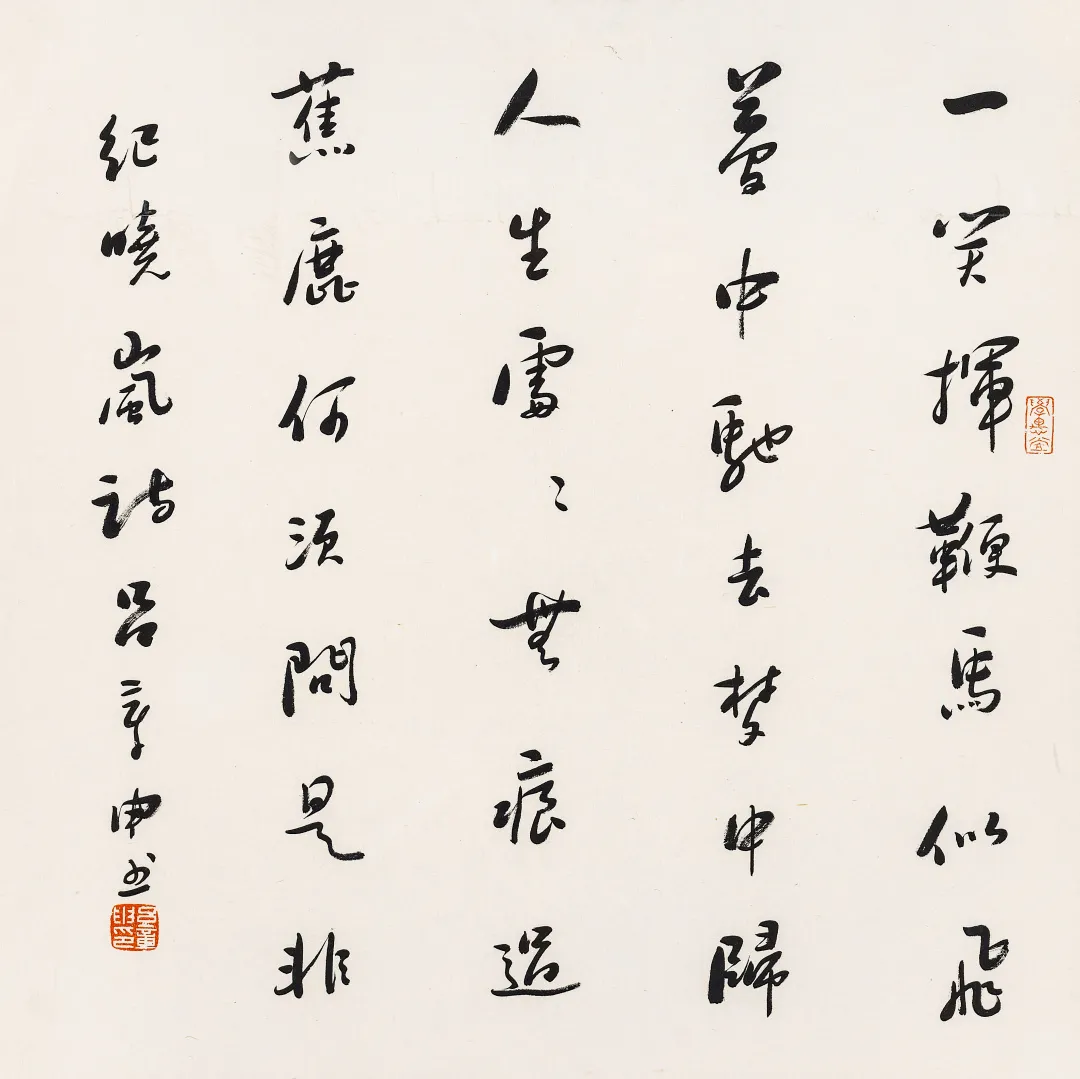 一笑揮鞭馬似飛
夢中馳去梦中歸
人生處〻無痕過
蕉鹿何須問是非
紀曉嵐詩呂章申書
呂章申印